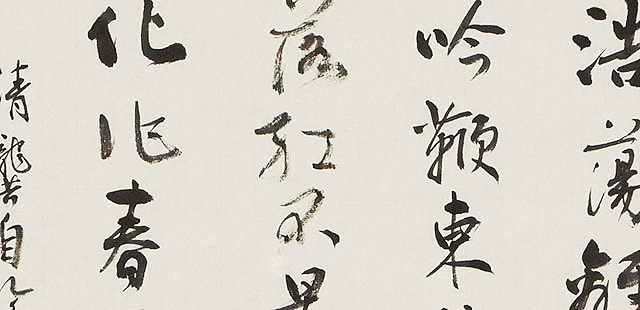 浩蕩離
吟鞭東
落紅不是
化作春
清龔自